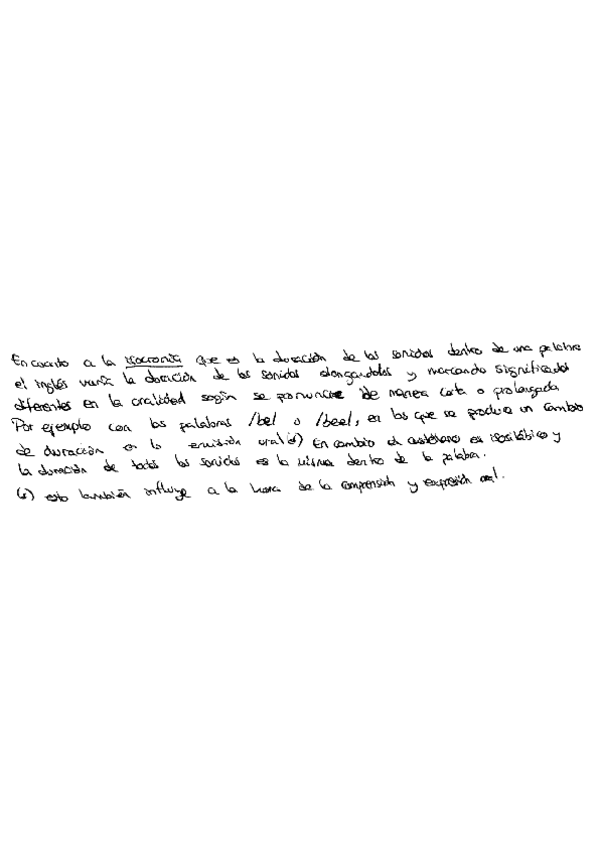 En cuanto a la isocronía que es la duración de los sonidos dentro de una palabra
el inglés varía la duración de los sonidos elongandolos y marcando significados
diferentes en la oralidad según se pronuncie de manera corta o prolongada
Por ejemplo con las palabras /bel o /beel, en las que se produce un cambio
de duración en la emisión oral(*) En cambio el castellano es isosilábico y
la duración de todos los sonidos es la misma dentro de la palabra.
(*) esto también influye a la hora de la comprensión y expresión oral.